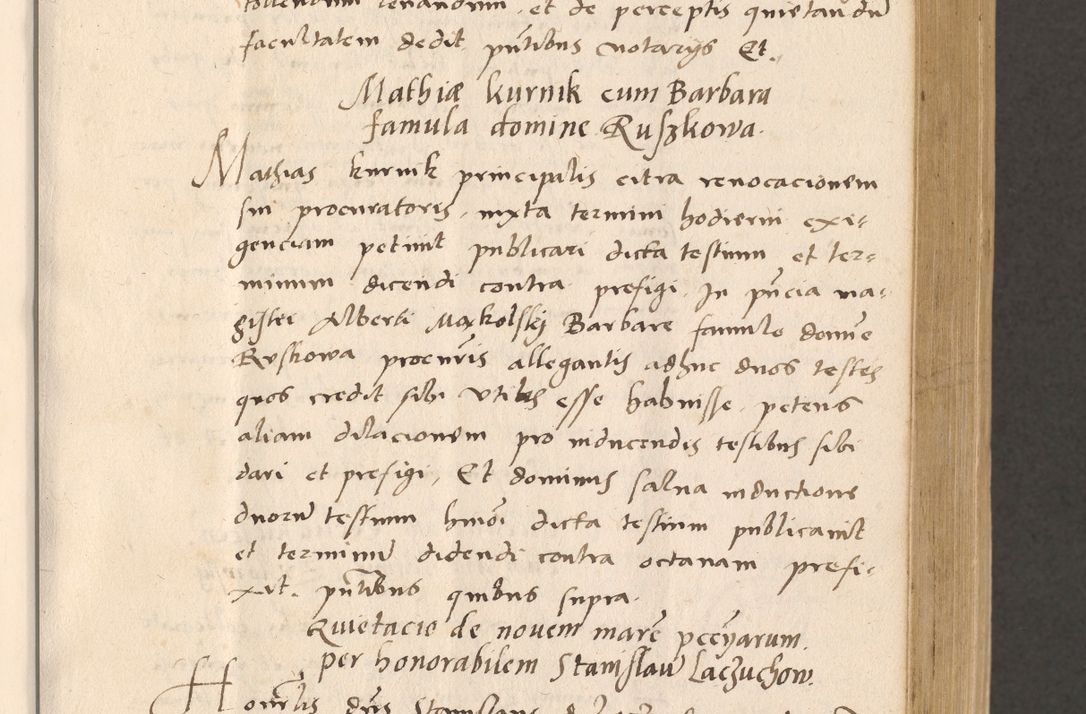 tollendum levandum, et de perceptis quietandũ
facultatem dedit pñtibus notarijs Et.,
Mathiæ kurnik cum Barbara
famula domine Ruszkowa.
Mathias kurnik principalis citra revocacionem
sui procuratoris, iuxta termini hodierni exi-
genciam petiuit publicari dicta testium et ter-
minum dicendi contra prefigi. In pñcia ma-
gistri Alberti Maxkolskj Barbare famule domĩe
Ruskowa procuris allegantis adhuc duos testes
quos credit sibi utiles esse habuisse. petens
aliam dilacionem pro inducendis testibus sibi
dari et prefigi, Et dominus salua inductione
duorũ testium hmõi dicta testium publicauit
et terminũ didendi contra octauam prefi-
xit. pñtibus quibus supra.
Quietacio de novem marc̃ peccyarum.
per honorabilem Stanislaũ Laczuchow.
Honorlis dñs Stanislaus